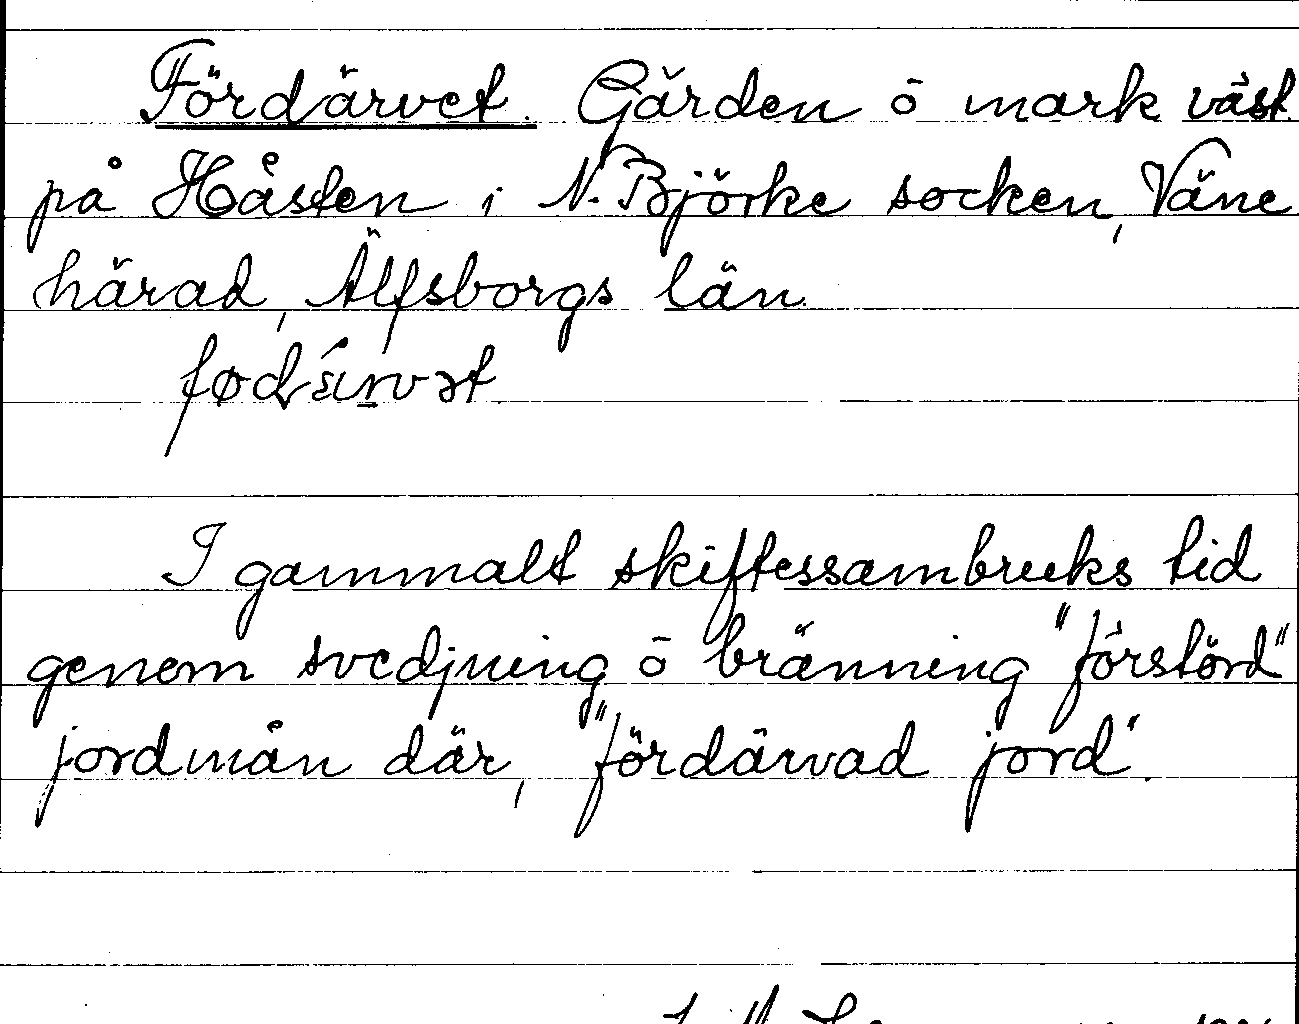 Fördärvet. Gården ō mark väst.
på Håsten i N. Björke socken, Väne
härad, Älfsborgs län.
I gammalt skiftessambruks tid
genom svedjning ō bränning "förstörd"
jordmån där, "fördärvad jord".